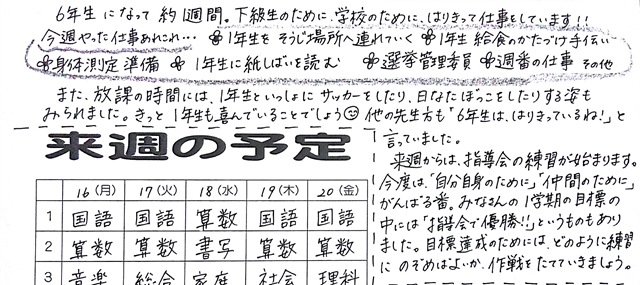 6年生になって約1週間。下級生のために、学校のために、はりきって仕事をしています!!
今週やった仕事あれこれ… 1年生をそうじ場所へ連れていく 1年生給食のかたづけ手伝い
身体測定準備 1年生に紙しばいを読む 選挙管理委員 週番の仕事 その他
また、放課の時間には、1年生といっしょにサッカーをしたり、日なたぼっこをしたりする姿も
みられました。きっと1年生も喜んでいることでしょう 他の先生方も「6年生は、はりきっているね!」と
言っていました。
来週からは、指導会の練習が始まります。
今度は、「自分自身のために」「仲間のために」
がんばる番。みなさんの1学期の目標の
中には「指導会で優勝!!」というものもあり
ました。目標達成のためには、どのように練習
にのぞめばよいか、作戦をたてていきましょう。
来週の予定
16(月) 17(火) 18(水) 19(木) 20(金)
1 国語 国語 算数 国語 国語
2 算数 算数 書写 算数 算数
3 音楽 総合 家庭 社会 理科